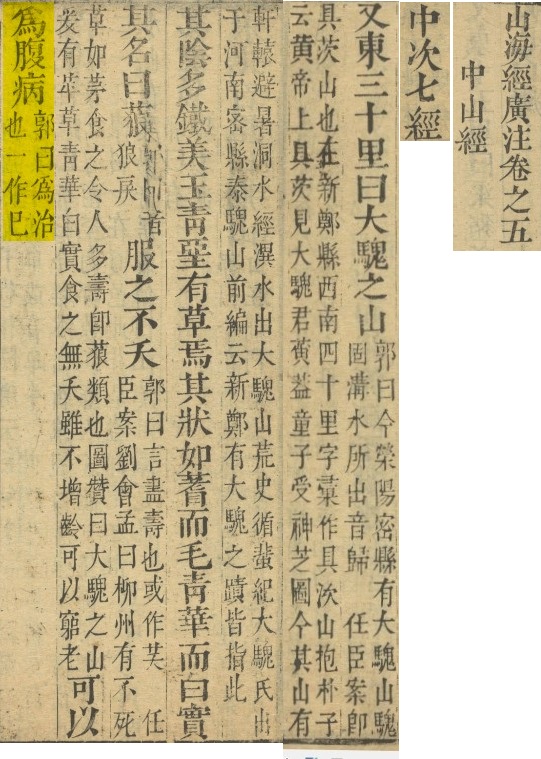 山海經廣注卷之五
中山經
中次七經
又東三十里曰大騩之山
郭曰今滎陽密縣有大騩山騩
固溝水所出音歸 任臣案卽
具茨山也在新鄭縣西南四十里字彙作具㳄山抱朴子
云黃帝上具茨見大騩君黃葢童子受神芝圖今其山有
軒轅避暑洞水經潩水出大騩山荒史循蜚紀大騩氏出
于河南密縣泰騩山前編云新鄭有大騩之蹟皆指此
其陰多鐵美玉青堊有草焉其狀如蓍而毛青華而白實
其名曰
狼戾
服之不夭
郭曰言盡壽也或作芺 任
臣案劉會孟曰柳州有不死
草如茅食之令人多壽卽類也圖贊曰大騩之山
爰有苹草青華白實食之無夭雖不增齡可以窮老
可以
爲腹病
郭曰爲治
也一作巳